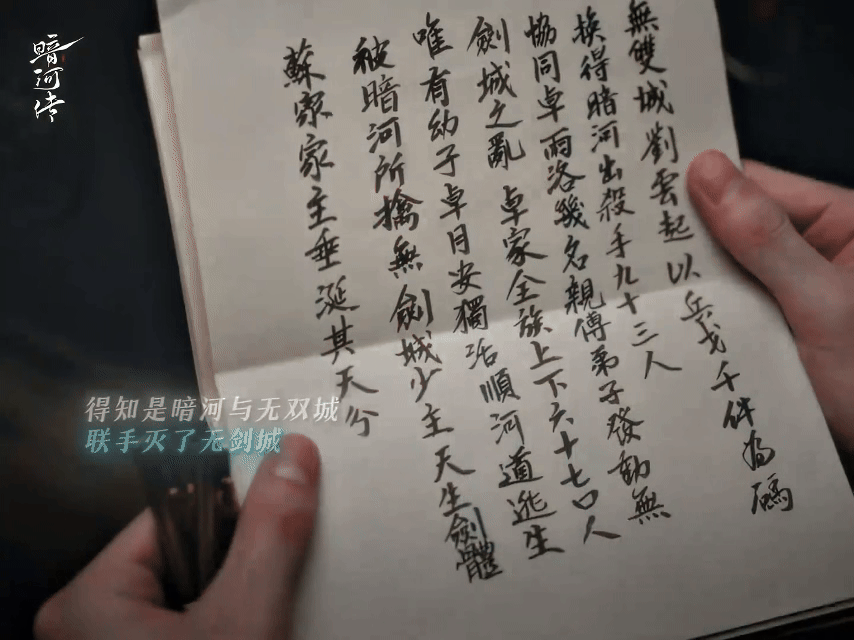 暗河传
無雙城劉雲起以兵戈千件為碼
換得暗河出殺手九十三人
協同卓雨洛幾名親傳弟子發動無
劍城之亂 卓家全族上下六十七口人
唯有幼子卓月安獨活順河道逃生
被暗河所擒無劍城少主天生劍體
蘇家家主垂涎其天分
得知是暗河与无双城
联手灭了无剑城